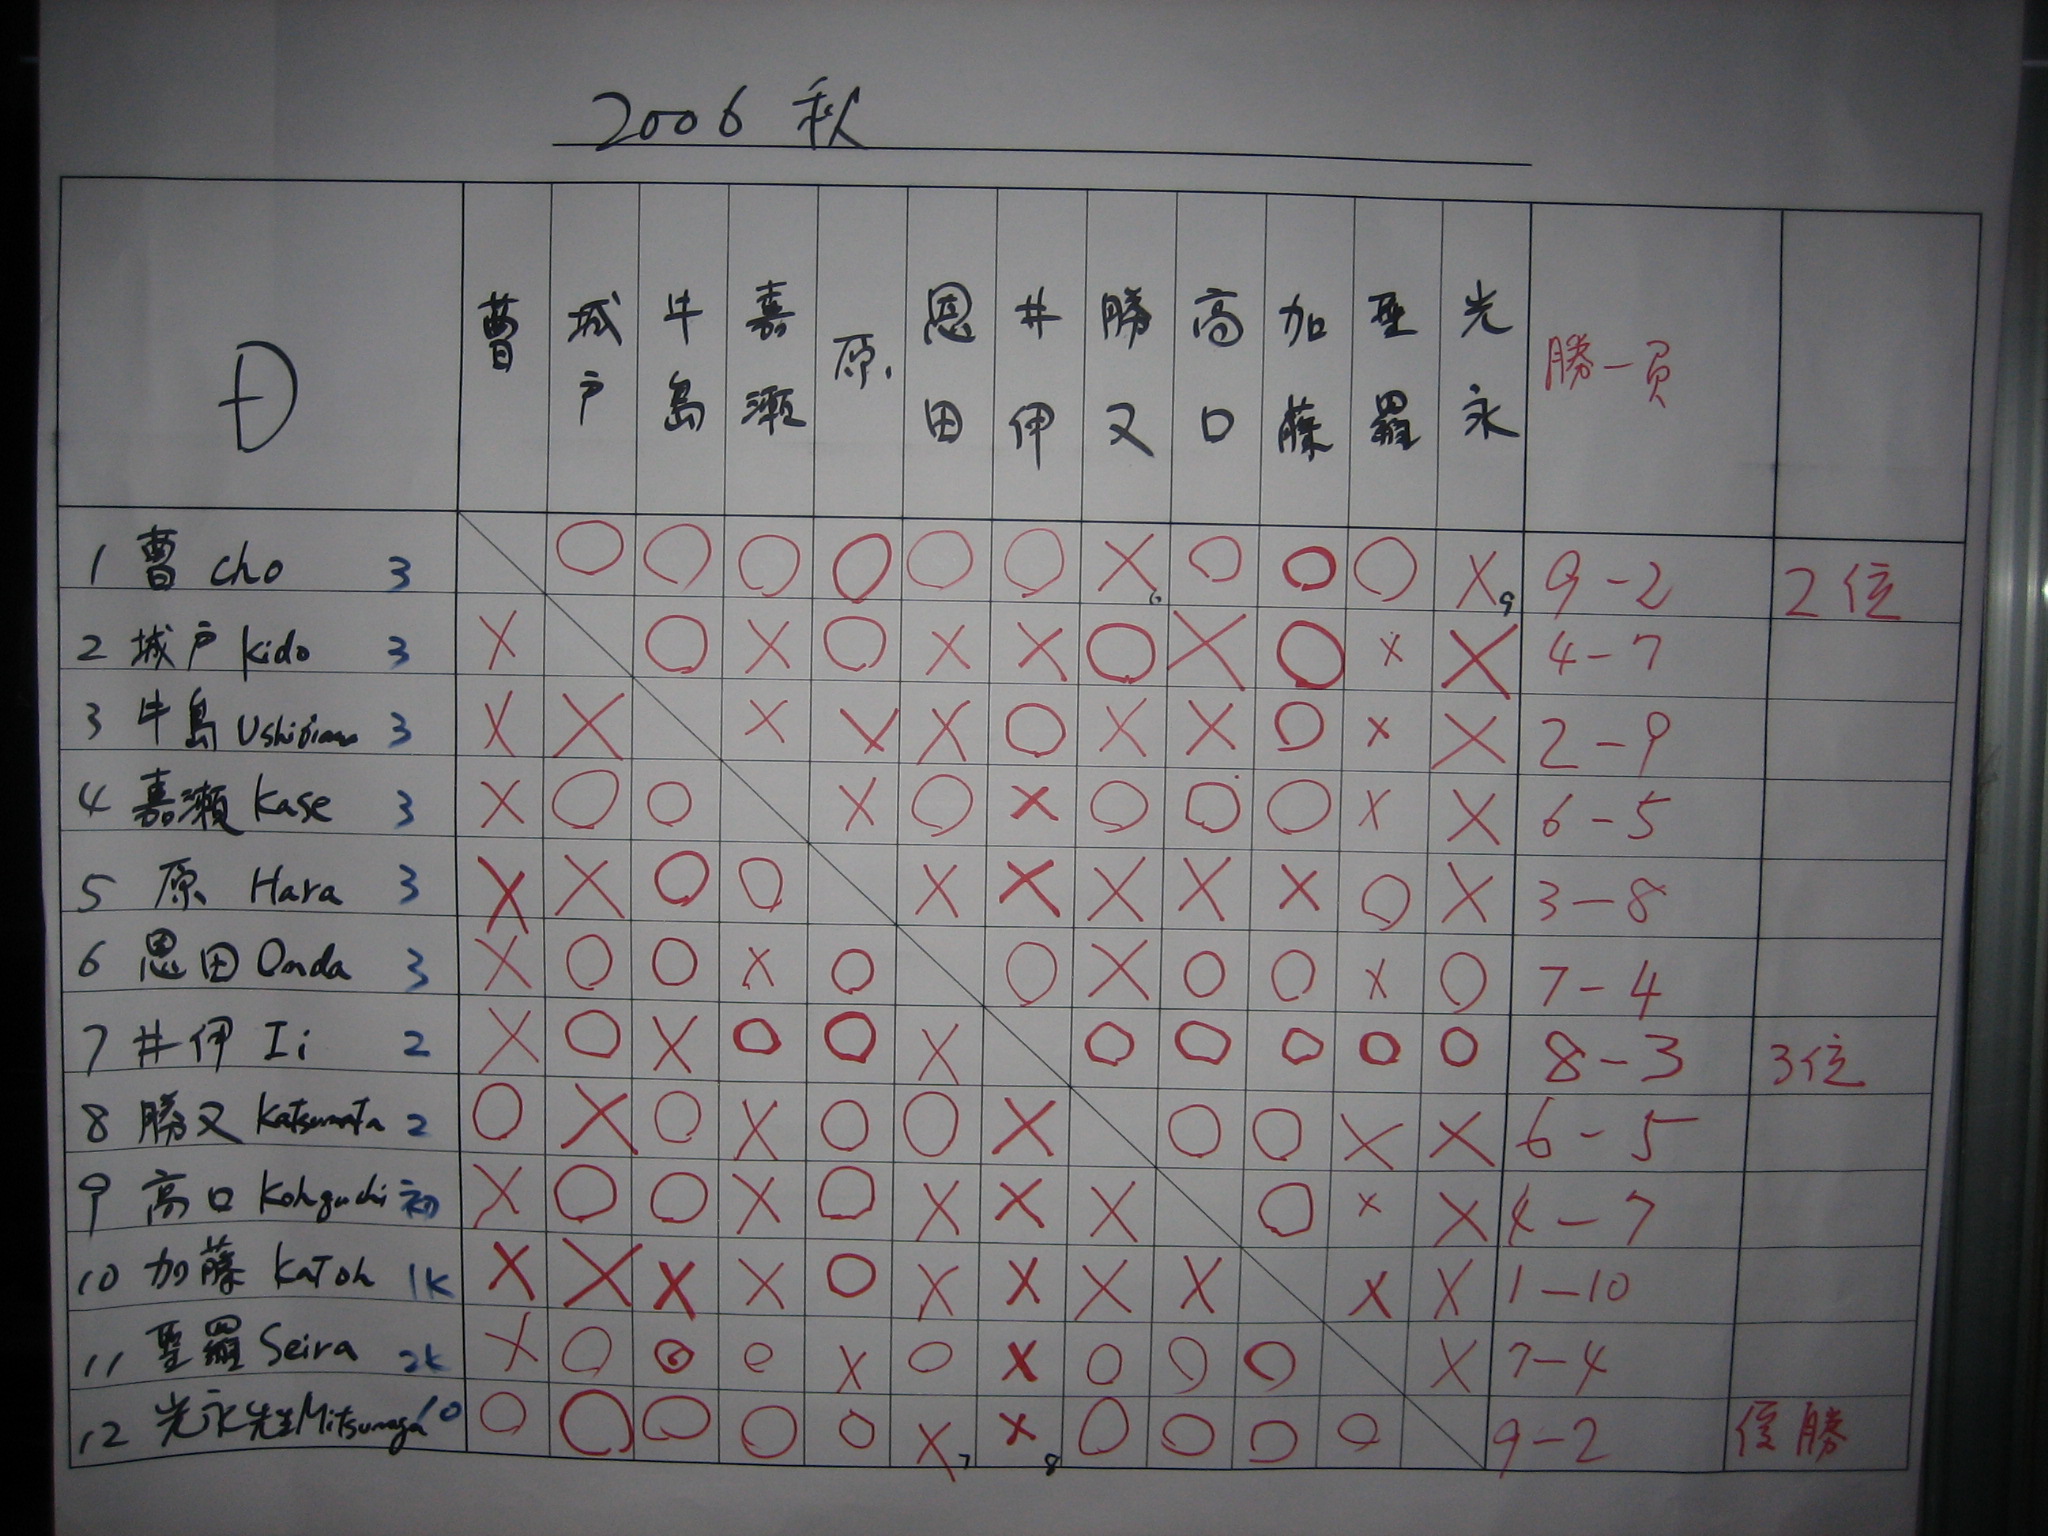 2006 秋
Đ 曹 城戸 牛島 嘉瀬 原 恩田 井伊 勝又 高口 加藤 聖羅 光永 勝-負
1 曹 Cho 3 ○ ○ ○ ○ ○ ○ X 6 ○ ○ ○ X 9 9-2 2位
2 城戸 Kido 3 X ○ X ○ X X ○ X ○ X X 4-7
3 牛島 Ushijima 3 X X X X X ○ X X ○ X X 2-9
4 嘉瀬 Kase 3 X ○ ○ X ○ X ○ ○ ○ X X 6-5
5 原 Hara 3 X X ○ ○ X X X X X ○ X 3-8
6 恩田 Onda 3 X ○ ○ X ○ ○ X ○ ○ X ○ 7-4
7 井伊 Ii 2 X ○ X ○ ○ X ○ ○ ○ ○ ○ 8-3 3位
8 勝又 Katsumata 2 ○ X ○ X ○ ○ X ○ ○ X X 6-5
9 高口 Kohguchi 初 X ○ ○ X ○ X X X ○ X X 4-7
10 加藤 Katoh 1K X X X X ○ X X X X X X 1-10
11 聖羅 Seira 2K X ○ ○ ○ X ○ X ○ ○ ○ X 7-4
12 光永先生 Mitsunaga 10 ○ ○ ○ ○ ○ X 7 X 8 ○ ○ ○ ○ 9-2 優勝